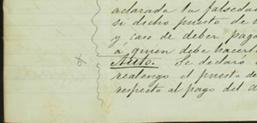 aclarada tu falsedad
si dicho puesto de v
y caso de deber pago
á quien debe hacerse
Auto. Se declaró
realengo el puesto de
respecto al pago del d